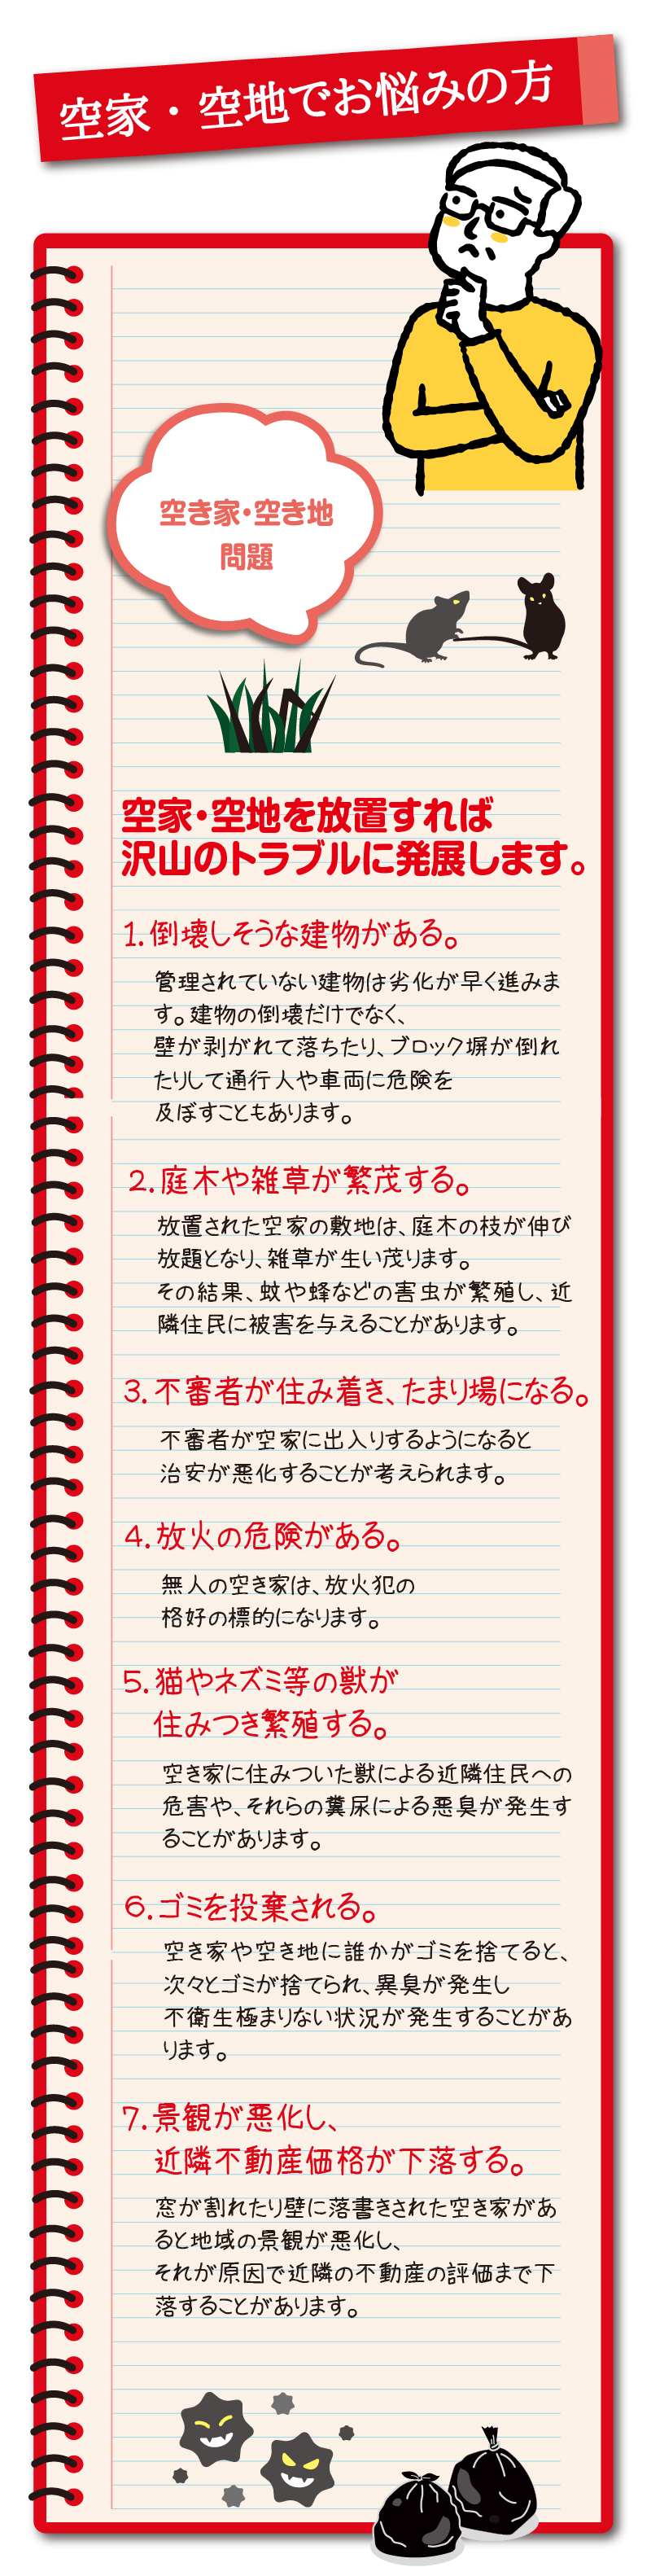 空家・空地でお悩みの方
空き家・空き地
問題
空家・空地を放置すれば
沢山のトラブルに発展します。
1.倒壊しそうな建物がある。
管理されていない建物は劣化が早く進みま
す。建物の倒壊だけでなく、
壁が剥がれて落ちたり、ブロック塀が倒れ
たりして通行人や車両に危険を
及ぼすこともあります。
2.庭木や雑草が繁茂する。
放置された空家の敷地は、庭木の枝が伸び
放題となり、雑草が生い茂ります。
その結果、蚊や蜂などの害虫が繁殖し、近
隣住民に被害を与えることがあります。
3.不審者が住み着き、たまり場になる。
不審者が空家に出入りするようになると
治安が悪化することが考えられます。
4.放火の危険がある。
無人の空き家は、放火犯の
格好の標的になります。
5.猫やネズミ等の獣が
住みつき繁殖する。
空き家に住みついた獣による近隣住民への
危害や、それらの糞尿による悪臭が発生す
ることがあります。
6.ゴミを投棄される。
空き家や空き地に誰かがゴミを捨てると、
次々とゴミが捨てられ、異臭が発生し
不衛生極まりない状況が発生することがあ
ります。
7.景観が悪化し、
近隣不動産価格が下落する。
窓が割れたり壁に落書きされた空き家があ
ると地域の景観が悪化し、
それが原因で近隣の不動産の評価まで下
落することがあります。